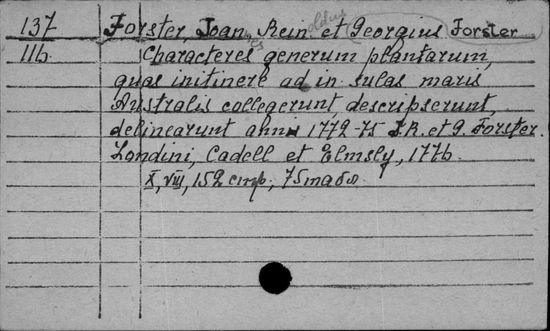 137 Forster, Joan Reinoldus et Georgius Forster
116 Characteres generum plantarum,
quas initinere ad in sulas maris
Australis collegerunt, descripserunt,
delinearunt annis 1772-75 J.R. et G. Forster.
Londini, Cadell et Elmsly, 1776.
X, VIII, 152 стр., 75 табл.